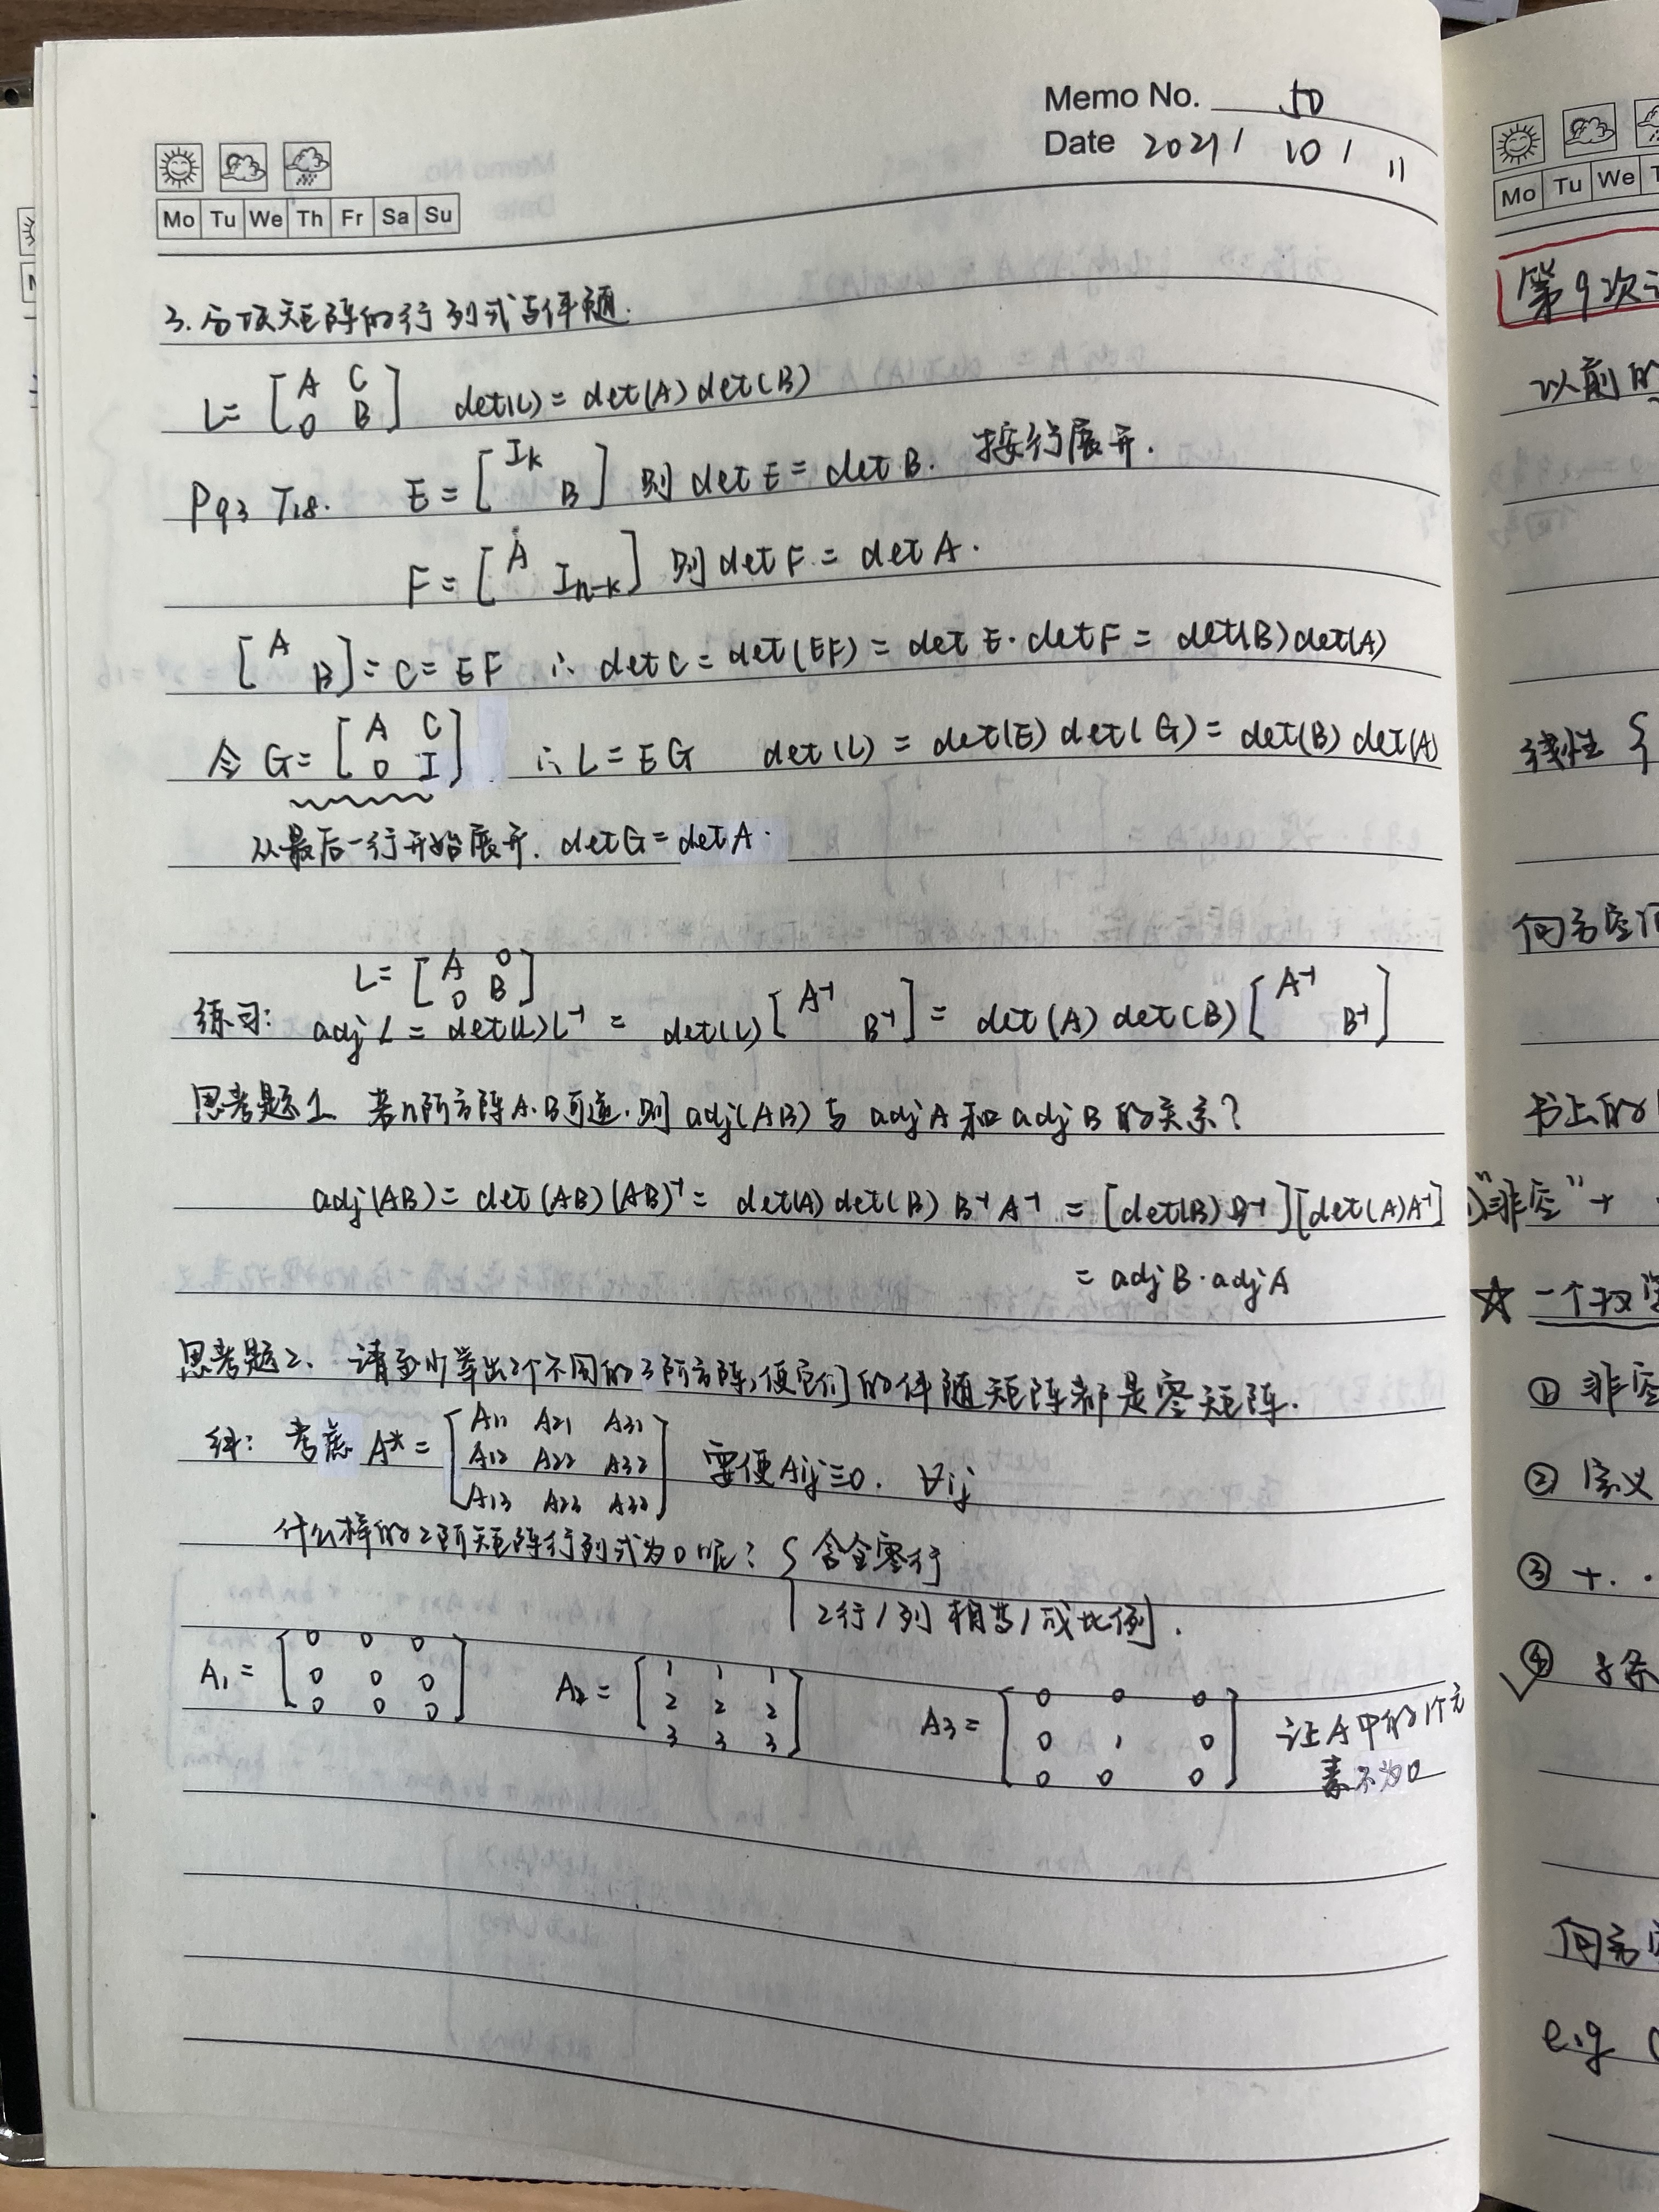 Memo No. 50
Date 2021 / 10 / 11
Mo Tu We Th Fr Sa Su
3. 分块矩阵的行列式与伴随.
L = [A C; 0 B] det(L) = det(A) det(B)
P93 T18. E = [Ik  ;  B] 则 det E = det B. 按行展开.
F = [A  ;  In-k] 则 det F = det A.
[A  ;  B] = C = EF ∴ det C = det(EF) = det E · det F = det(B) det(A)
令 G = [A C; 0 I] ∴ L = EG det(L) = det(E) det(G) = det(B) det(A)
从最后一行开始展开. det G = det A.
L = [A 0; 0 B]
练习: adj L = det(L) L⁻¹ = det(L) [A⁻¹  ;  B⁻¹] = det(A) det(B) [A⁻¹  ;  B⁻¹]
思考题1. 若n阶方阵A.B可逆.则 adj(AB) 与 adj A 和 adj B 的关系?
adj(AB) = det(AB)(AB)⁻¹ = det(A) det(B) B⁻¹ A⁻¹ = [det(B) B⁻¹][det(A) A⁻¹]
= adj B · adj A
思考题2. 请至少举出2个不同的3阶方阵,使它们的伴随矩阵都是零矩阵.
解: 考虑 A* = [A11 A21 A31; A12 A22 A32; A13 A23 A33] 要使Aij=0. ∀ij
什么样的2阶矩阵行列式为0呢? { 含全零行
2行/列 相等/成比例.
A1 = [0 0 0; 0 0 0; 0 0 0] A2 = [1 1 1; 2 2 2; 3 3 3] A3 = [0 0 0; 0 1 0; 0 0 0] 让A中的1个元
素不为0
Mo Tu We
第9次
以前的
线性 {
向量空间
书上的
"非空" +
☆ 一个
① 非空
② 定义
③ +. ·
④
向量
e.g